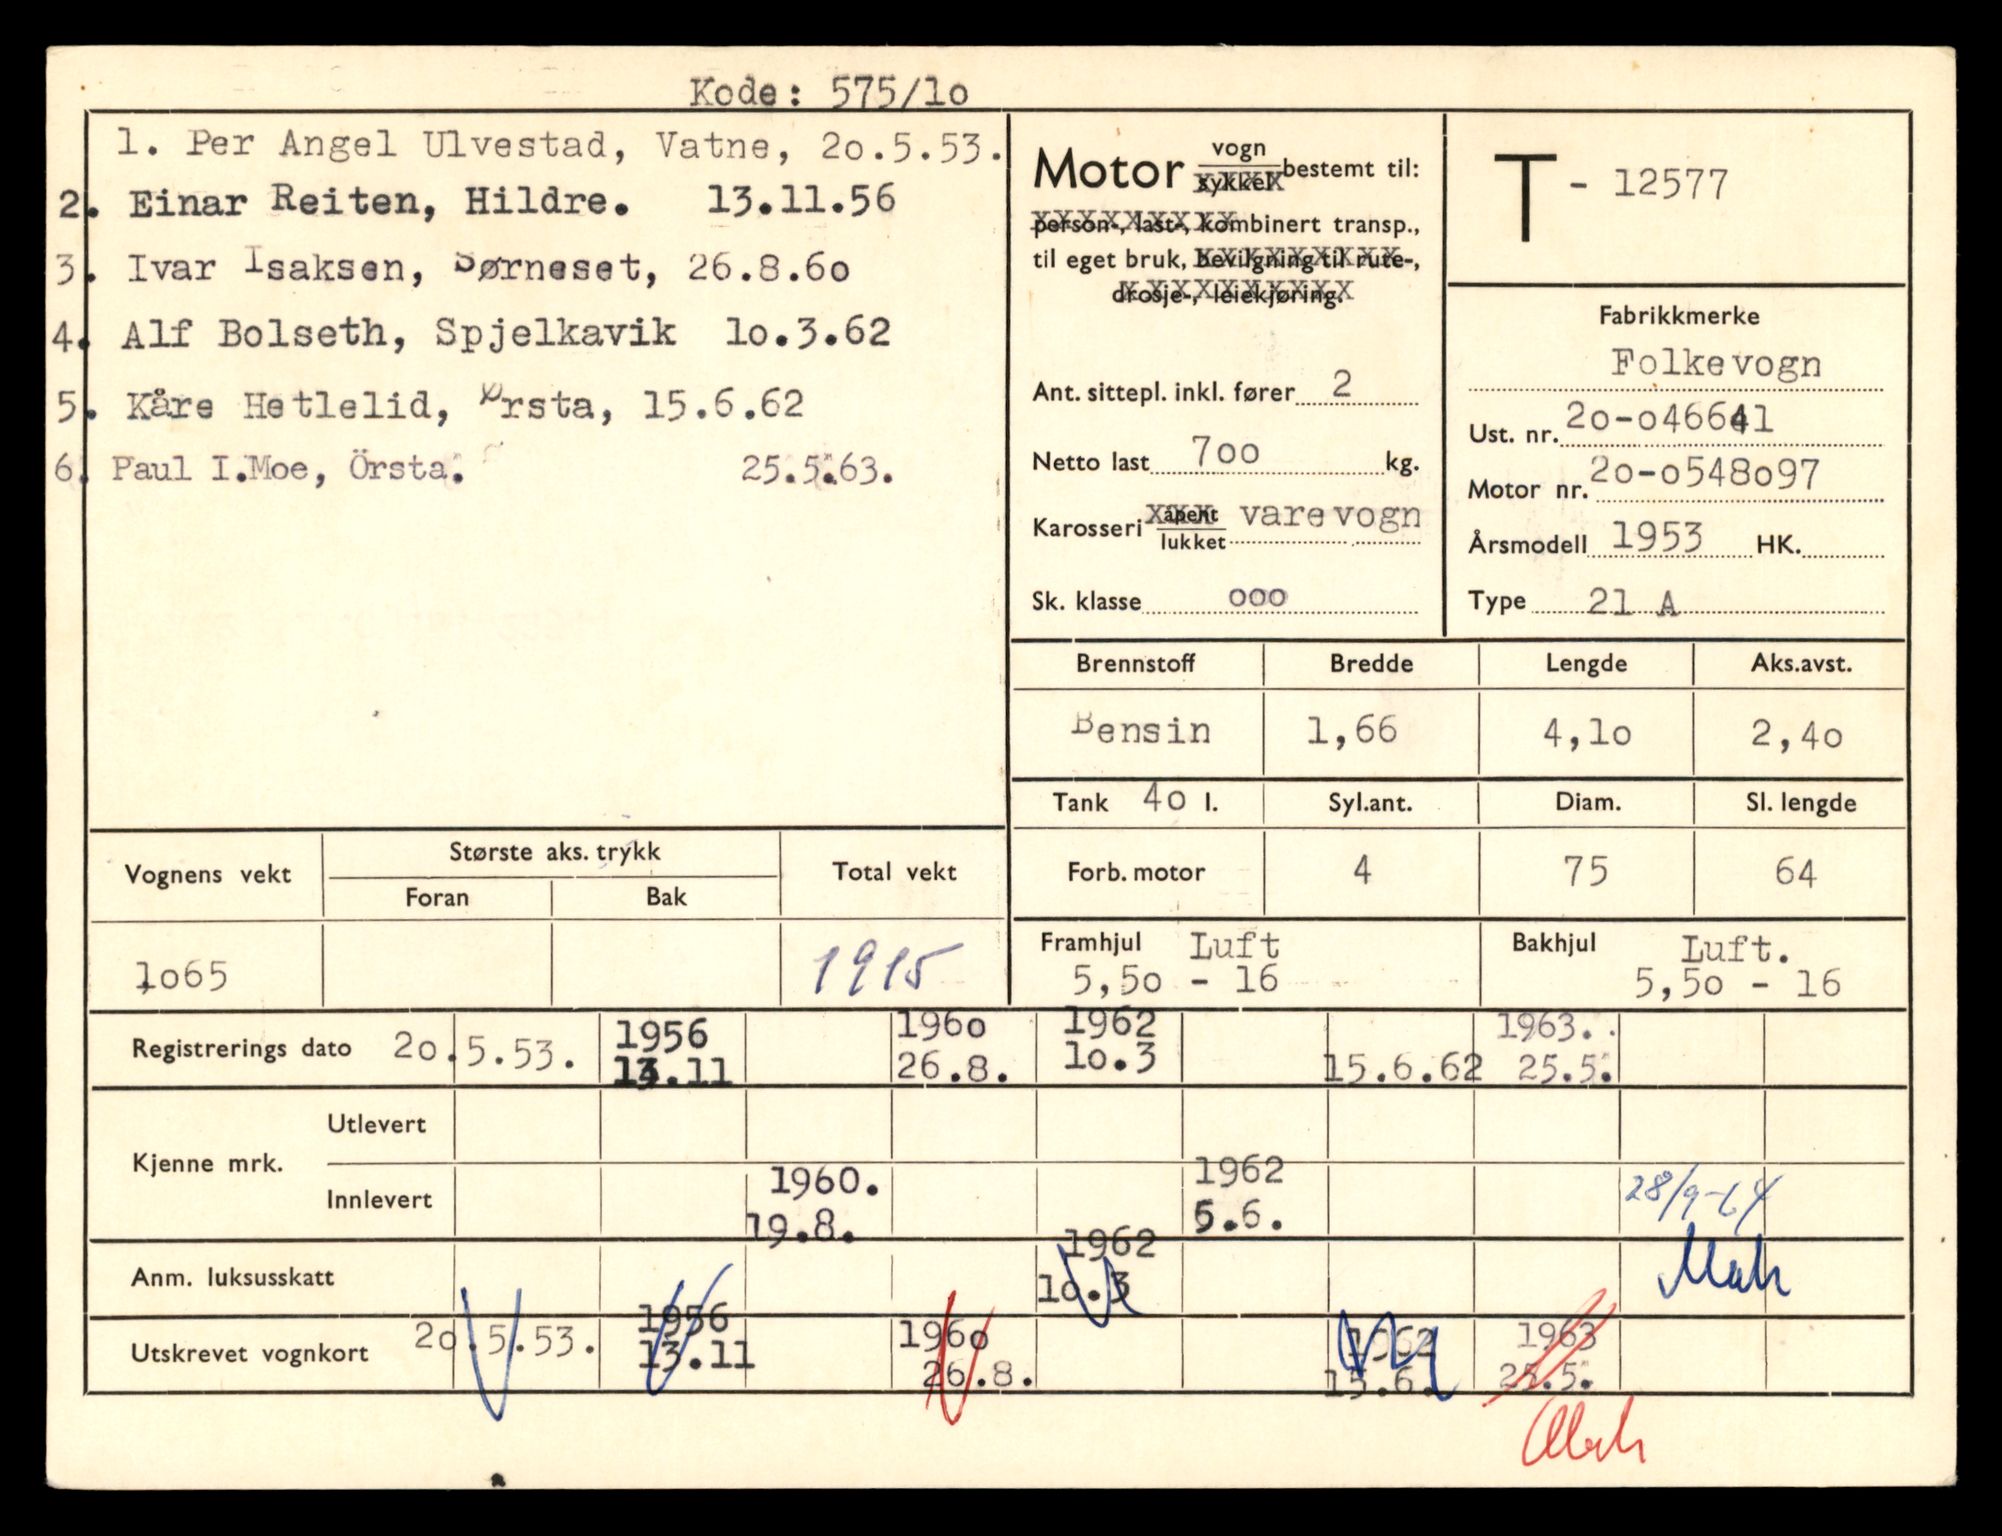 Kode: 575/1o
1. Per Angel Ulvestad, Vatne, 2o.5.53.
2. Einar Reiten, Hildre. 13.11.56
3. Ivar Isaksen, Sørneset, 26.8.6o
4. Alf Bolseth, Spjelkavik 1o.3.62
5. Kåre Hetlelid, Ørsta, 15.6.62
6. Paul I.Moe, Örsta. 25.5.63.
Motor vogn/sykkel bestemt til:
person-, last-, kombinert transp.,
til eget bruk, bevilgning til rute-,
drosje-, leiekjøring.
Ant. sittepl. inkl. fører 2
Netto last 7oo kg.
Karosseri åpent/lukket varevogn
Sk. klasse ooo
T - 12577
Fabrikkmerke
Folkevogn
Ust. nr. 2o-o46641
Motor nr. 2o-o548o97
Årsmodell 1953 HK.
Type 21 A
Brennstoff Bredde Lengde Aks.avst.
Bensin 1,66 4,1o 2,4o
Tank 4o l. Syl.ant. Diam. Sl. lengde
Forb. motor 4 75 64
Framhjul Luft Bakhjul Luft.
5,5o - 16 5,5o - 16
Vognens vekt Største aks. trykk Total vekt
Foran Bak
1o65 1915
1956 196o 1962 1963.
Registrerings dato 2o.5.53. 13.11 26.8. 1o.3 15.6.62 25.5.
Utlevert
Kjenne mrk.
1960. 1962 28/9-64
Innlevert 19.8. 5.6.
1962
Anm. luksusskatt 1o.3
1956 196o 1962 1963
Utskrevet vognkort 2o.5.53. 13.11 26.8. 15.6. 25.5.